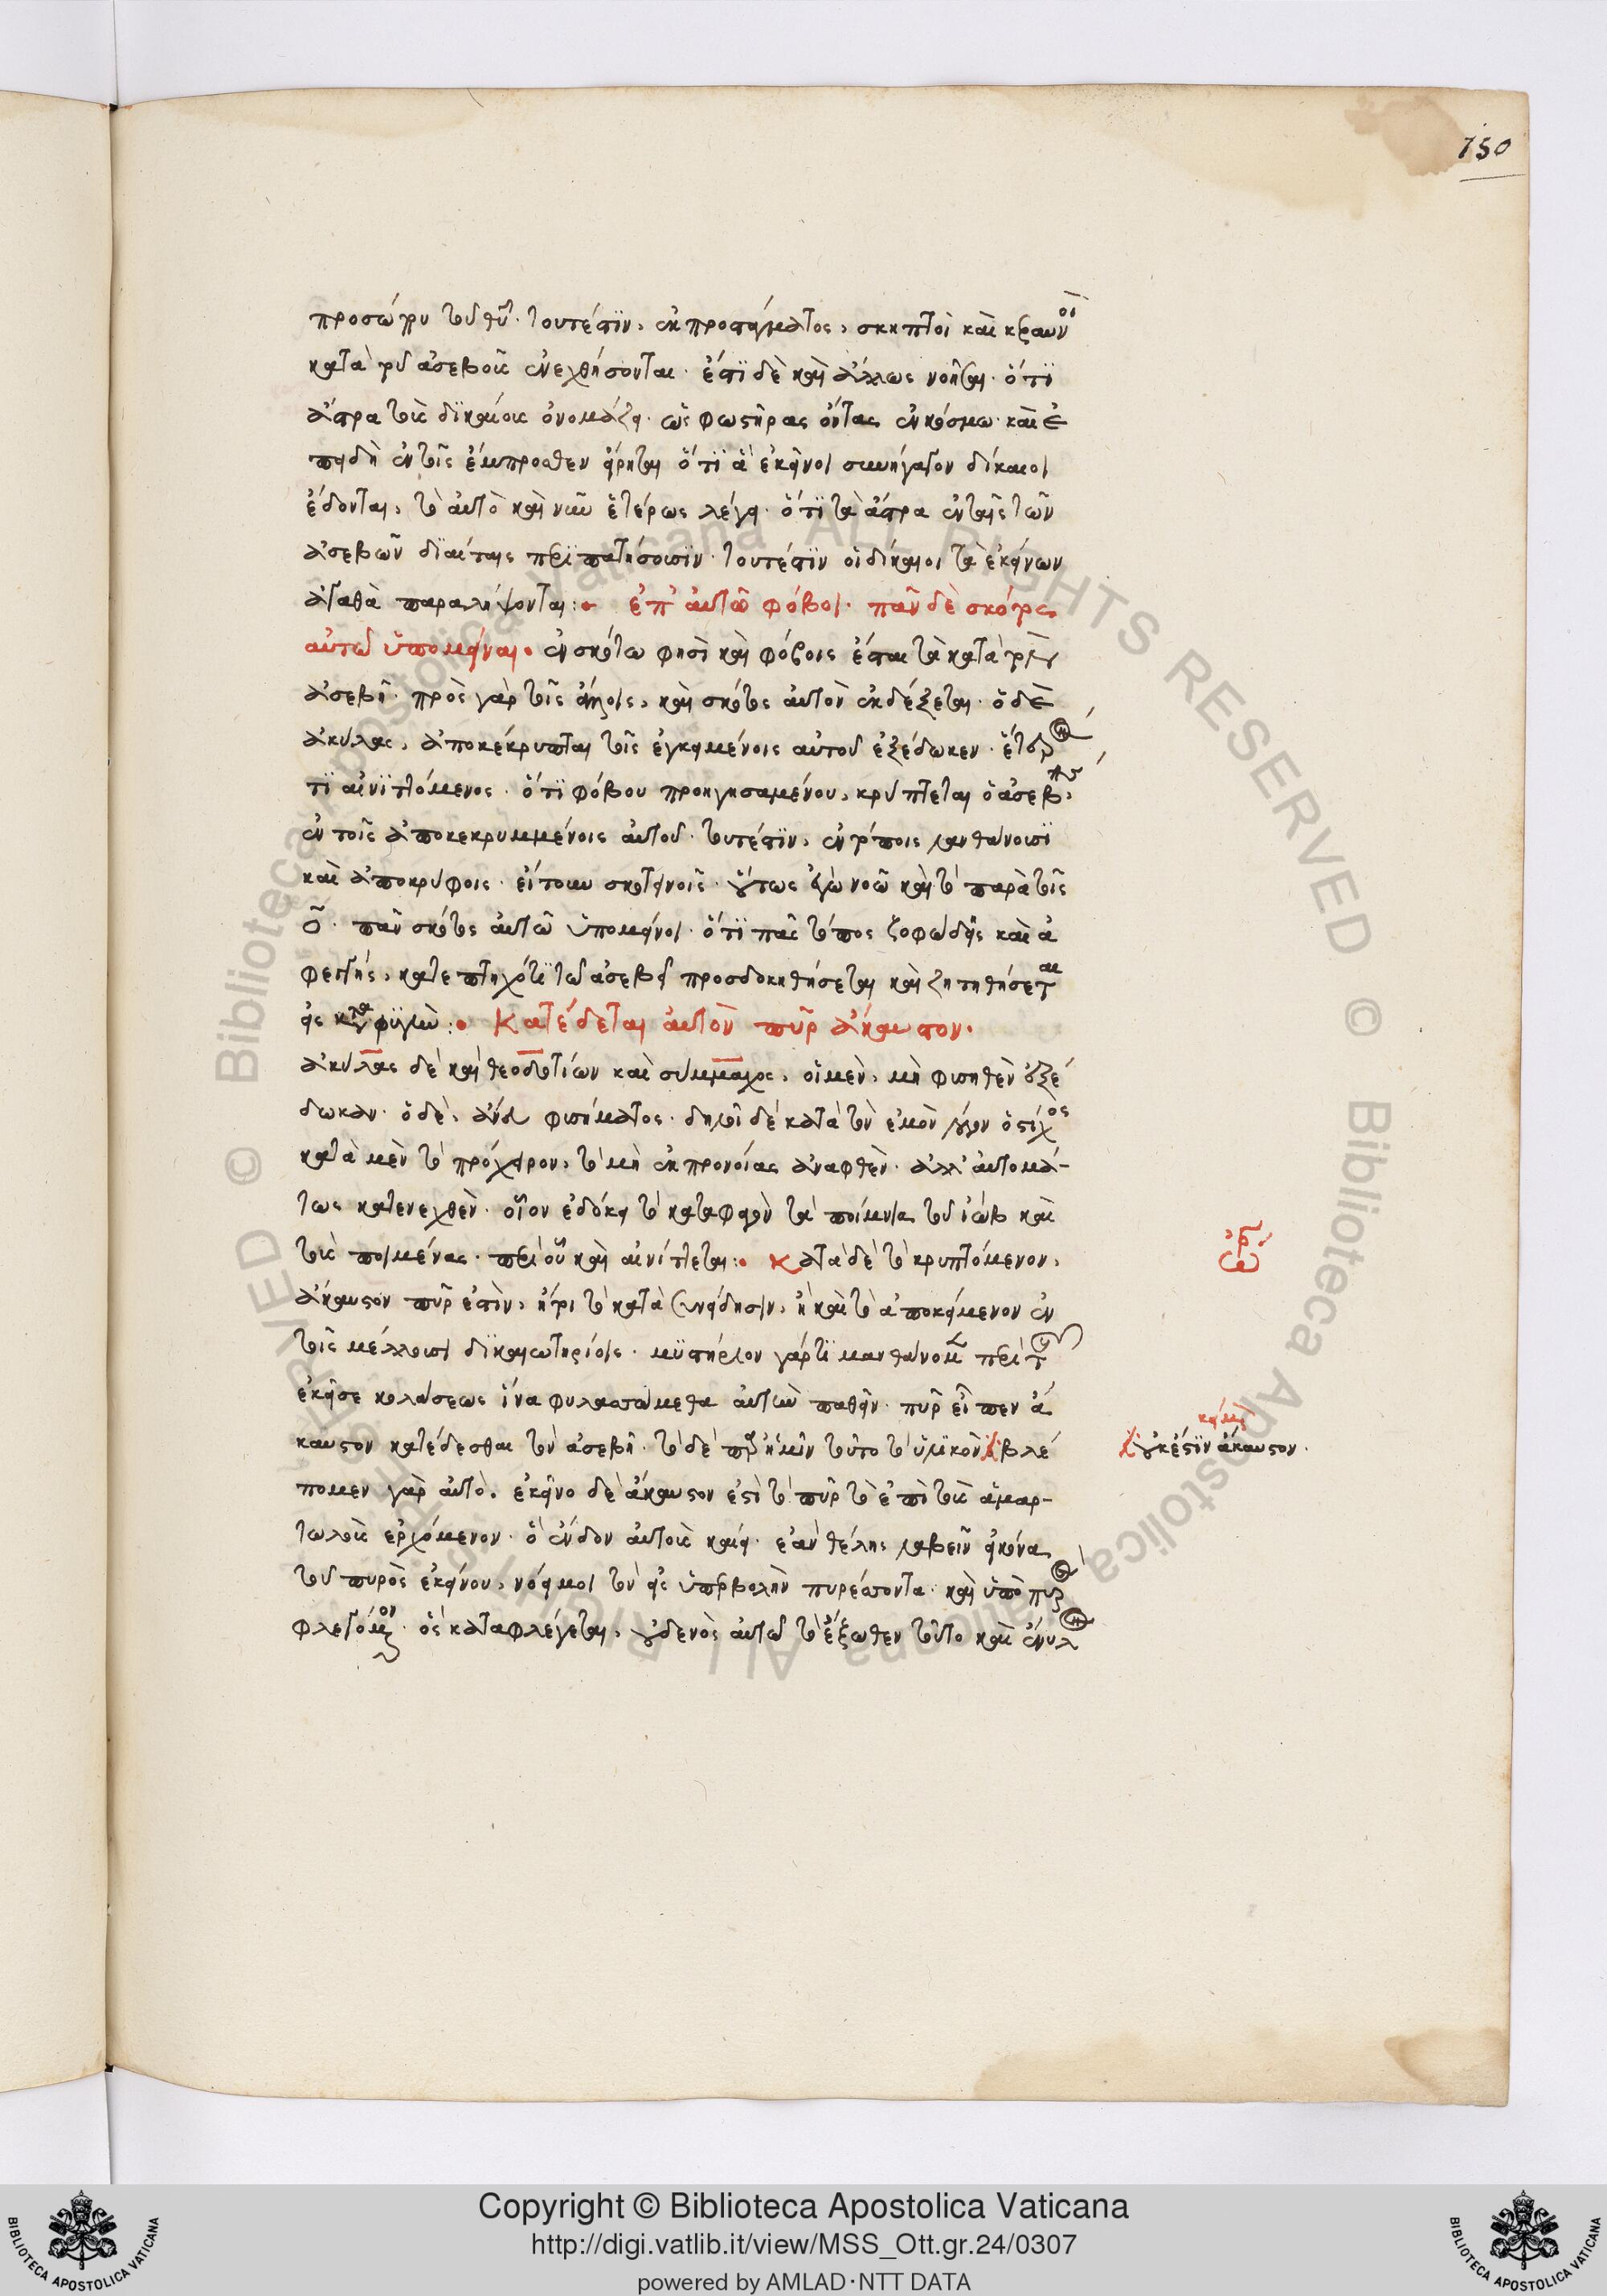 150
προσώπου τοῦ θυ̅· τουτέστιν, ἐκ προστάγματος, σκηπτοὶ καὶ κεραυνοὶ
κατὰ τοῦ ἀσεβοῦς ἐνεχθήσονται· ἔστι δὲ καὶ ἄλλως νοῆσαι· ὅτι
ἄστρα τοὺς δικαίους ὀνομάζει· ὡς φωστῆρας ὄντας ἐν κόσμω· καὶ ἐ
πειδὴ ἐν τοῖς ἔμπροσθεν εἴρηται ὅτι ἃ ἐκεῖνοι συνήγαγον δίκαιοι
ἔδονται, τὸ αὐτὸ καὶ νῦν ἑτέρως λέγει· ὅτι τὰ ἄστρα ἐν ταῖς τῶν
ἀσεβῶν διαίταις περιπατήσουσιν· τουτέστιν οἱ δίκαιοι τὰ ἐκείνων
ἀγαθὰ παραλήψονται: ἐπ' αὐτῶ φόβοι· πᾶν δὲ σκότος
αὐτῶ ὑπομείναι· ἐν σκότω φησὶ καὶ φόβοις ἔσται τὰ κατὰ τὸν
ἀσεβῆ· πρὸς γὰρ τοῖς ἄλλοις, καὶ σκότος αὐτὸν ἐκδέξεται· ὁ δὲ
ἀκύλας, ἀποκέκρυπται τοῖς ἐγκειμένοις αὐτοῦ ἐξέδωκεν·
τι αἰνιττόμενος· ὅτι φόβου προηγησαμένου, κρύπτεται ὁ ἀσεβὴς,
ἐν τοῖς ἀποκεκρυμμένοις αὐτοῦ· τουτέστιν, ἐν τόποις λανθάνουσι
καὶ ἀποκρύφοις· εἴτουν σκοτεινοῖς· οὕτως ἐγὼ νοῶ καὶ τὸ παρὰ τοῖς
ο̅· πᾶν σκότος αὐτῶ ὑπομείνοι· ὅτι πᾶς τόπος ζοφώδης καὶ ἀ
φεγγὴς, κατεπτηχότι τῶ ἀσεβεῖ προσδοκηθήσεται καὶ ζητηθήσεται
εἰς καταφυγὴν: Κατέδεται αὐτὸν πῦρ ἄκαυστον·
ἀκύλας δὲ καὶ θεοδοτίων καὶ σύμμαχος, οἱ μὲν, μὴ φυσηθὲν ἐξέ
δωκαν· ὁ δὲ, ἄνευ φυσήματος· δηλοῖ δὲ κατὰ τὸν ἐμὸν λόγον ὁ στίχος
κατὰ μὲν τὸ πρόχειρον, τὸ μὴ ἐκ προνοίας ἀναφθὲν· ἀλλ' αὐτομά-
τως κατενεχθὲν· οἷον ἐδόκει τὸ καταφαγὸν τὰ ποίμνια τοῦ ἰὼβ καὶ
τοὺς ποιμένας· περὶ οὗ καὶ αἰνίττεται: κατὰ δὲ τὸ κρυπτόμενον,
ἄκαυστον πῦρ ἐστὶν, ἤτοι τὸ κατὰ συνείδησιν, ἢ καὶ τὸ ἀποκείμενον ἐν
τοῖς μέλλουσι δικαιωτηρίοις· μυστήριον γάρ τι μανθάνομεν περὶ τῆς
ἐκεῖσε κολάσεως ἵνα φυλασσώμεθα αὐτὴν παθεῖν· πῦρ εἶπεν ἄ
καυστον κατέδεσθαι τὸν ἀσεβῆ· τὸ δὲ παρ' ἡμῖν τοῦτο τὸ ὑλικὸν βλέ
πομεν γὰρ αὐτό· ἐκεῖνο δὲ ἄκαυστον ἐστὶ τὸ πῦρ τὸ ἐπὶ τοὺς ἁμαρ-
τωλοὺς ἐρχόμενον· ὃ ἔνδον αὐτοὺς καίει· ἐὰν θέλης λαβεῖν εἰκόνα
τοῦ πυρὸς ἐκείνου, νόει μοι τὸν εἰς ὑπερβολὴν πυρέσσοντα· καὶ ὑπὸ πυρὸς
φλεγόμενον· ὃς καταφλέγεται, οὐδενὸς αὐτῶ τὸ ἔξωθεν τοῦτο καὶ ἔνυλον
ὡρ
κείμενον
οὐκ ἔστιν ἄκαυστον·